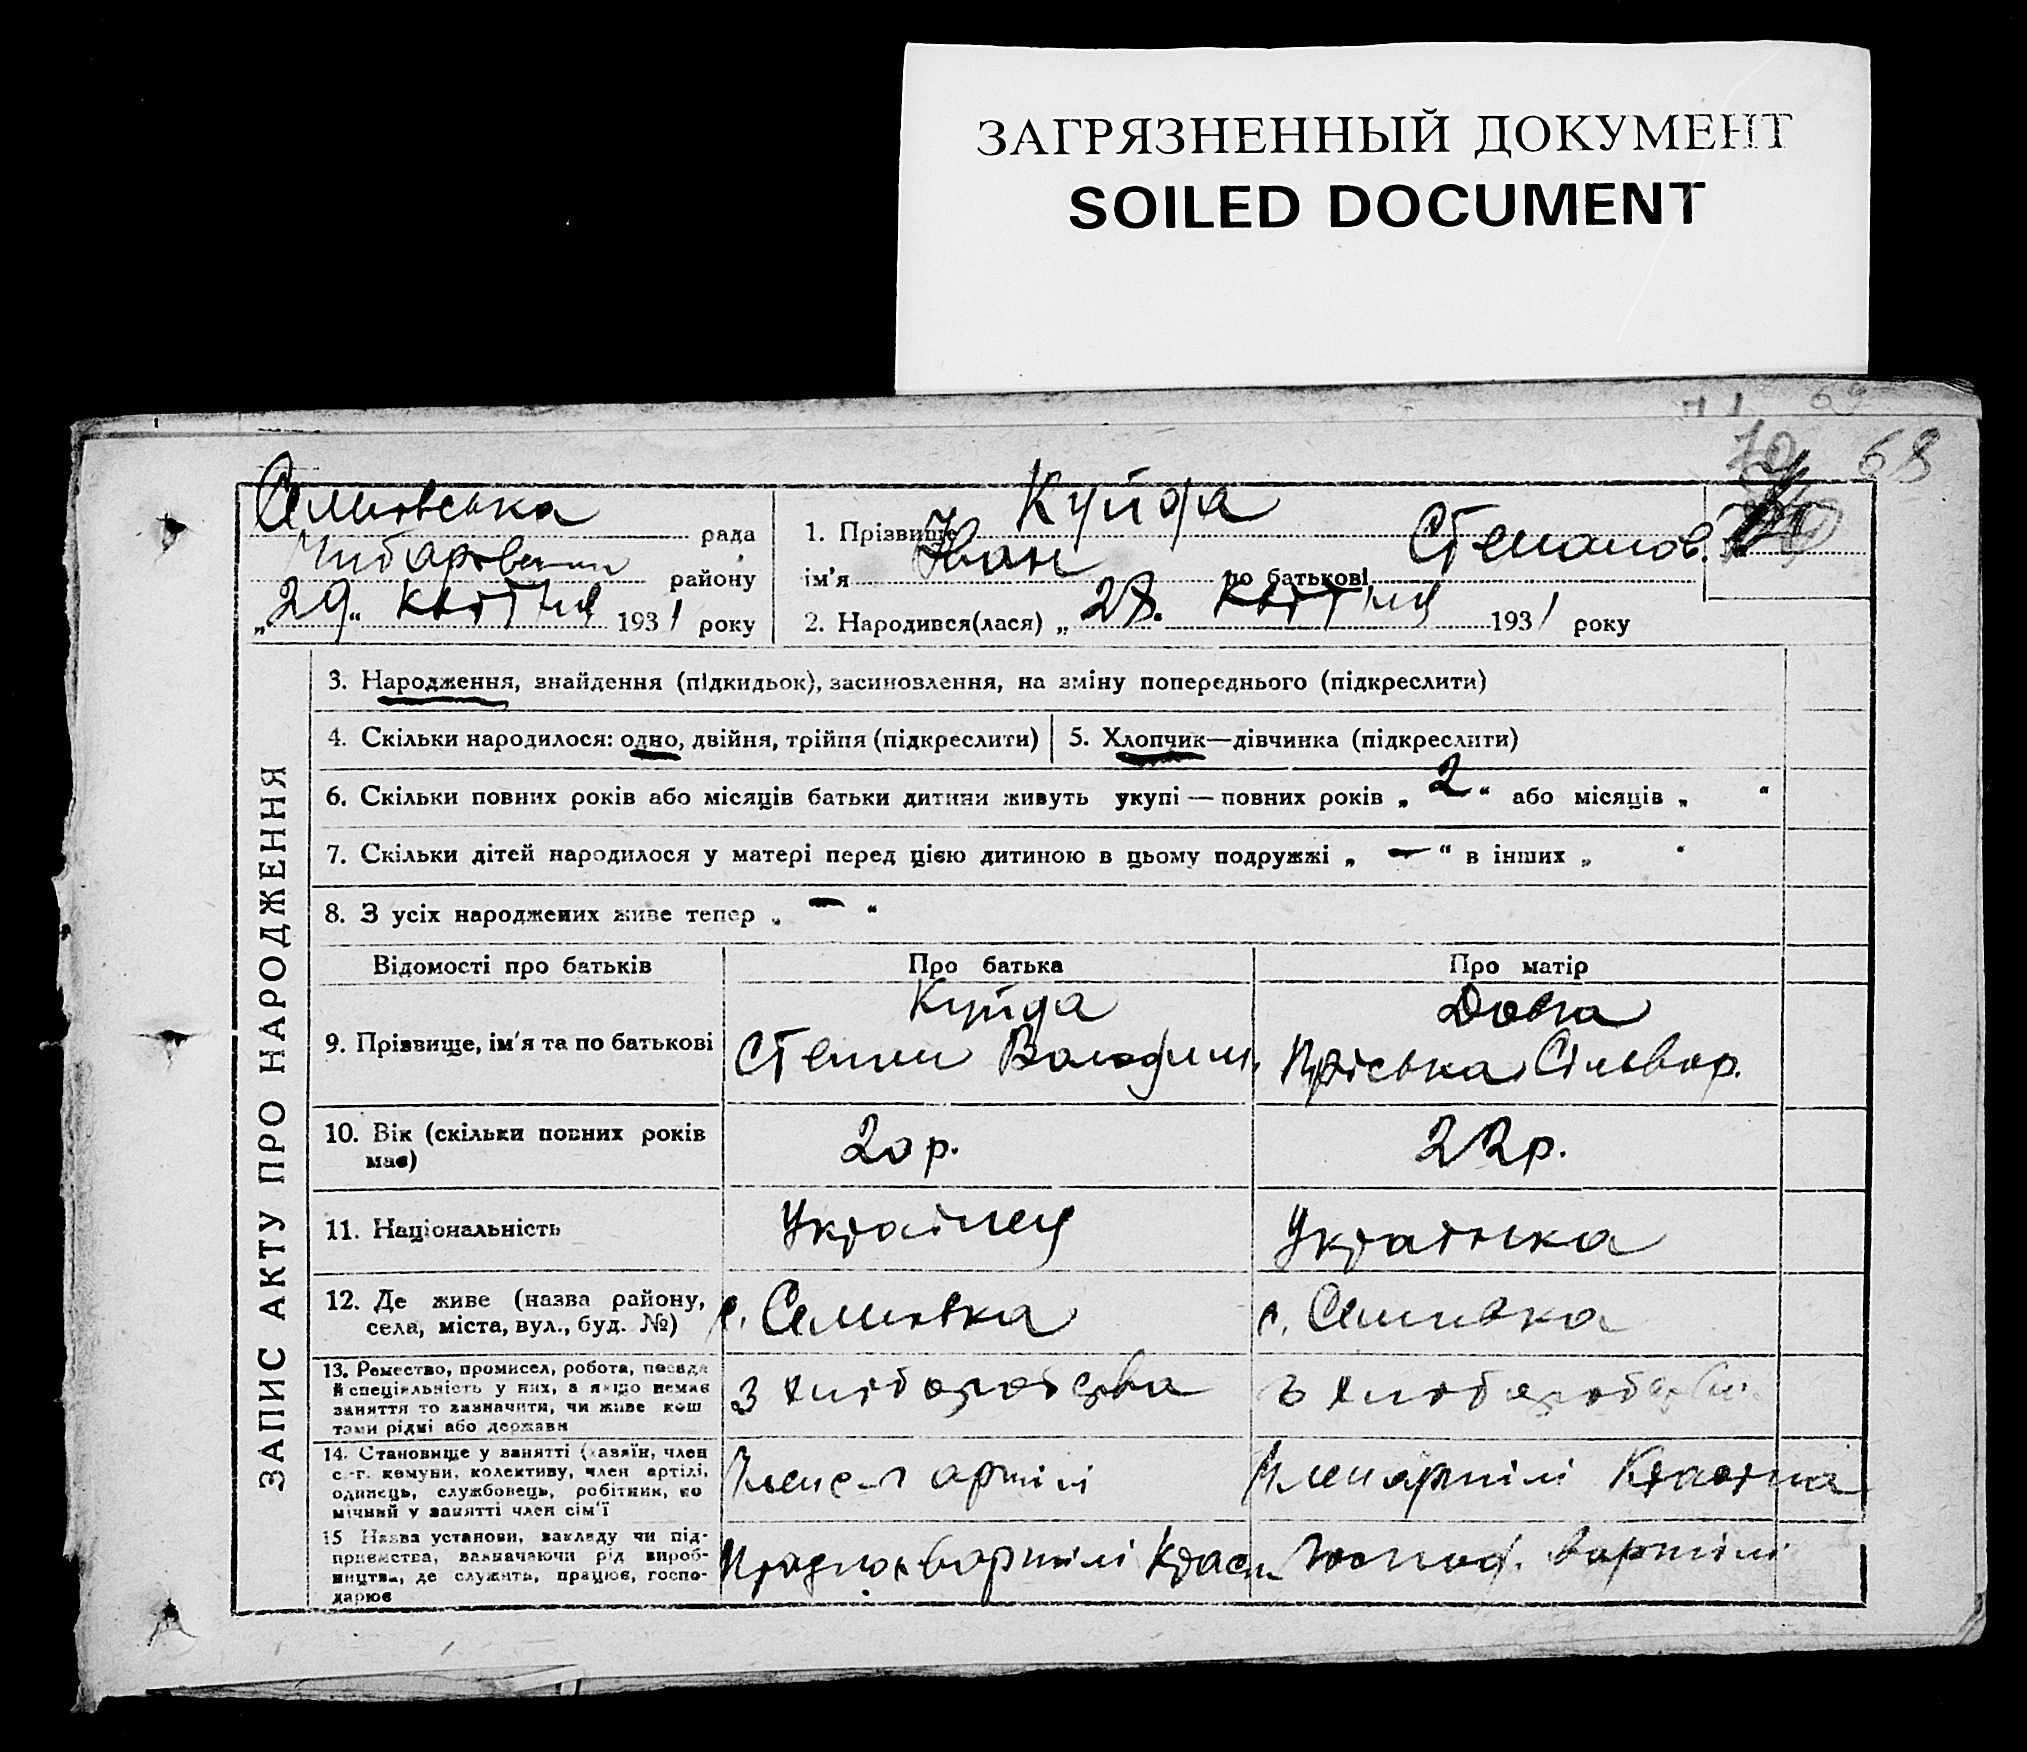 ЗАГРЯЗНЕННЫЙ ДОКУМЕНТ
SOILED DOCUMENT
68
Семивська рада
району
„29“ квітня 1931 року
1. Прізвище Куйда
ім'я Іван по батькові Степанов.
2. Народився(лася) „28“ квітня 1931 року
ЗАПИС АКТУ ПРО НАРОДЖЕННЯ
3. Народження, знайдення (підкидьок), засиновлення, на зміну попереднього (підкреслити)
4. Скільки народилося: одно, двійня, трійня (підкреслити)
5. Хлопчик—дівчинка (підкреслити)
6. Скільки повних років або місяців батьки дитини живуть укупі — повних років „2“ або місяців „ “
7. Скільки дітей народилося у матері перед цією дитиною в цьому подружжі „—“ в інших „ “
8. З усіх народжених живе тепер „—“
Відомості про батьків Про батька Про матір
9. Прізвище, ім'я та по батькові
Куйда
Степан Володим.
Довга
Пріська Сільвор.
10. Вік (скільки повних років має)
20 р.
22 р.
11. Національність
Українец
Українка
12. Де живе (назва району,
села, міста, вул., буд. №)
с. Семивка
с. Семивка
13. Ремество, промисел, робота, посада
й спеціяльність у них, а якщо немає
заняття то зазначити, чи живе кош
тами рідні або держави
З хліборобства
З хліборобства
14. Становище у занятті (хазяїн, член
с.-г. комуни, колективу, член артілі,
одинець, службовець, робітник, по
мічний у занятті член сім'ї
Член с-г артілі
Член артілі
15 Назва установи, закладу чи під-
приємства, зазначаючи рід вироб-
ництва, де служить, працює, госпо-
дарює
Працює в артілі
в артілі